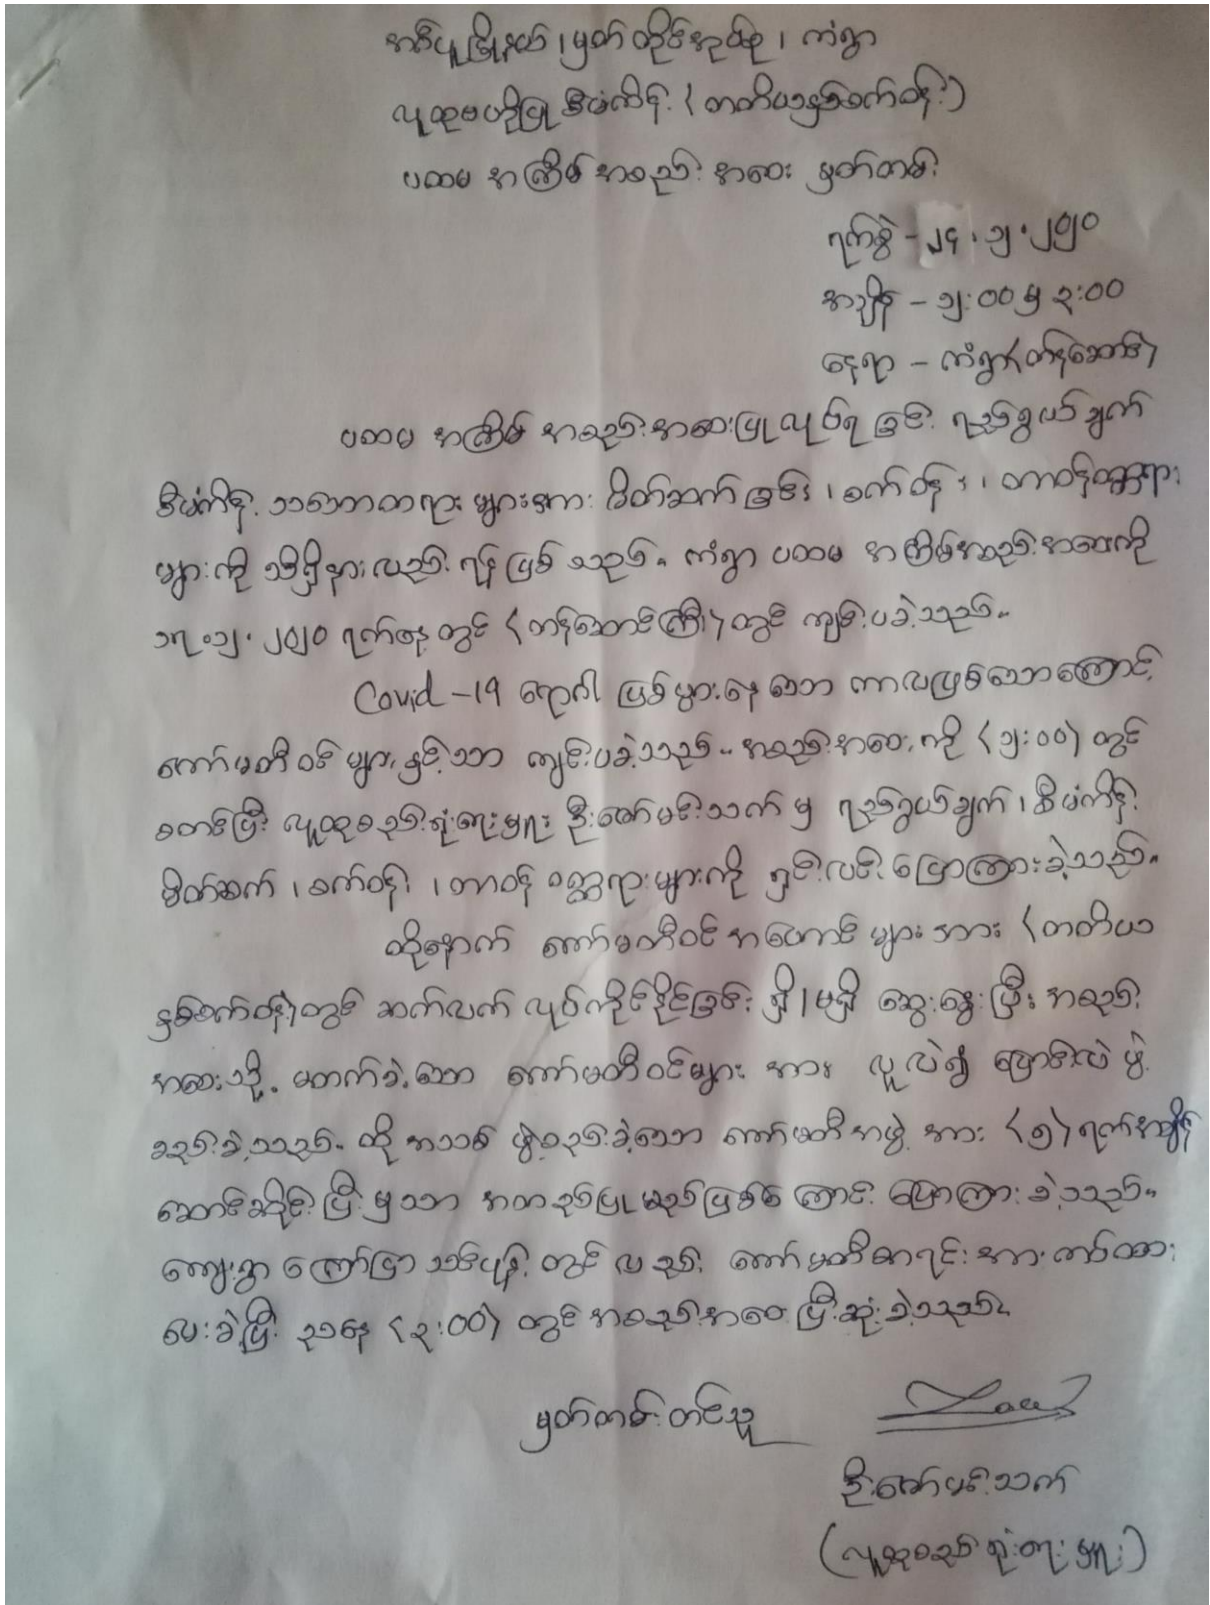 အမ်ပူမြို့နယ်၊ မှတ်တိုင်အုပ်စု၊ ကံရွာ
လူထုဗဟိုပြုစီမံကိန်း (တတိယနှစ်စက်ဝန်း)
ပထမ အကြိမ် အစည်း အဝေး မှတ်တမ်း
ရက်စွဲ - ၂၄.၁၂.၂၀၂၀
အချိန် - ၁၂:၀၀ မှ ၃:၀၀
နေရာ - ကံရွာ(တန်ဆောင်း)
ပထမ အကြိမ် အစည်းအဝေးပြုလုပ်ရ ခြင်း ရည်ရွယ်ချက်
စီမံကိန်း သဘောတရား များအား မိတ်ဆက် ခြင်း၊ စက်ဝန်း၊ တာဝန်ဝတ္တရား
များကို သိရှိနားလည် ရန် ဖြစ် သည်။ ကံရွာ ပထမ အကြိမ်အစည်းအဝေးကို
၁၇.၁၂.၂၀၂၀ ရက်နေ့ တွင် (တန်ဆောင်းကြီး) တွင် ကျင်းပခဲ့သည်။
Covid -19 ရောဂါ ဖြစ်ပွားနေ သော ကာလဖြစ်သောကြောင့်
ကော်မတီ ဝင် များနှင့်သာ ကျင်းပခဲ့သည်။ အစည်းအဝေးကို (၁၂:၀၀) တွင်
စတင်ပြီး လူထုစည်းရုံးရေးမှူး ဦးဇော်မင်းသက် မှ ရည်ရွယ်ချက်၊ စီမံကိန်း
မိတ်ဆက်၊ စက်ဝန်း၊ တာဝန် ဝတ္တရားများကို ရှင်းလင်း ပြောကြားခဲ့သည်။
ထို့နောက် ကော်မတီဝင် အဟောင်း များ အား (တတိယ
နှစ်စက်ဝန်း)တွင် ဆက်လက် လုပ်ကိုင်နိုင်ခြင်း ရှိ/မရှိ ဆွေးနွေးပြီး အစည်း
အဝေးသို့ မတက်ခဲ့သော ကော်မတီဝင်များ အား လူလဲ၍ ပြောင်းလဲ ဖွဲ့
စည်းခဲ့သည်။ ထို အသစ် ဖွဲ့စည်းခဲ့သော ကော်မတီအဖွဲ့ အား (၅)ရက်အချိန်
စောင့်ဆိုင်း ပြီးမှသာ အတည်ပြုမည်ဖြစ်ကြောင်း ပြောကြားခဲ့သည်။
ကျေးရွာ ကြော်ငြာ သင်ပုန်း တွင် လည်း ကော်မတီစာရင်း အား ကပ်ထား
ပေးခဲ့ပြီး ညနေ (၃:၀၀) တွင် အစည်းအဝေး ပြီးဆုံးခဲ့သည်။
မှတ်တမ်းတင်သူ
ဦးဇော်မင်းသက်
(လူထုစည်းရုံးရေးမှူး)